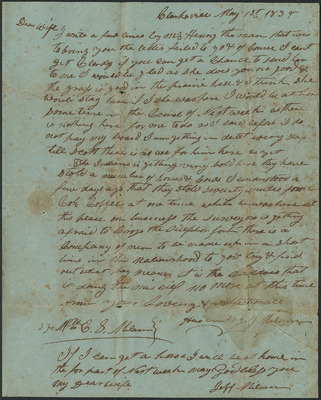 Clarksville May 1st 1838
Dear Wife
I write a few lines by Mr Henry the man that was
to bring you the letter failed to go & of course I cant
get Clarky if you can get a Chance to send her
to me I would be glad as she does you no good &
the grass is good in the prairie here & I think She
would stay here if She was here I would be at home
some time in the Course of Next week as there
is nothing here for me to do as I said before I do
not pay my board I am getting in debt every day
tell Scott there is no use for him here as yet
The Indians is getting very bold here they have
Stole a number of horses & I understood a
few days ago that they Stole Seventy mules from
Col Coffee at one time which he was here at
this place on business the Surveyors is getting
afraid to Cross the there is a
Company of men to be made up in a Short
time in this Naborhood to go & find
out what they mean it is the
that is doing the mischief no more at this time
from your loving & affectionate
Husband
To Mrs C. E. Milam
If I can get a horse I will be at home in
the fore part of Next week may God bless you
My dear wife
Jeff Milam